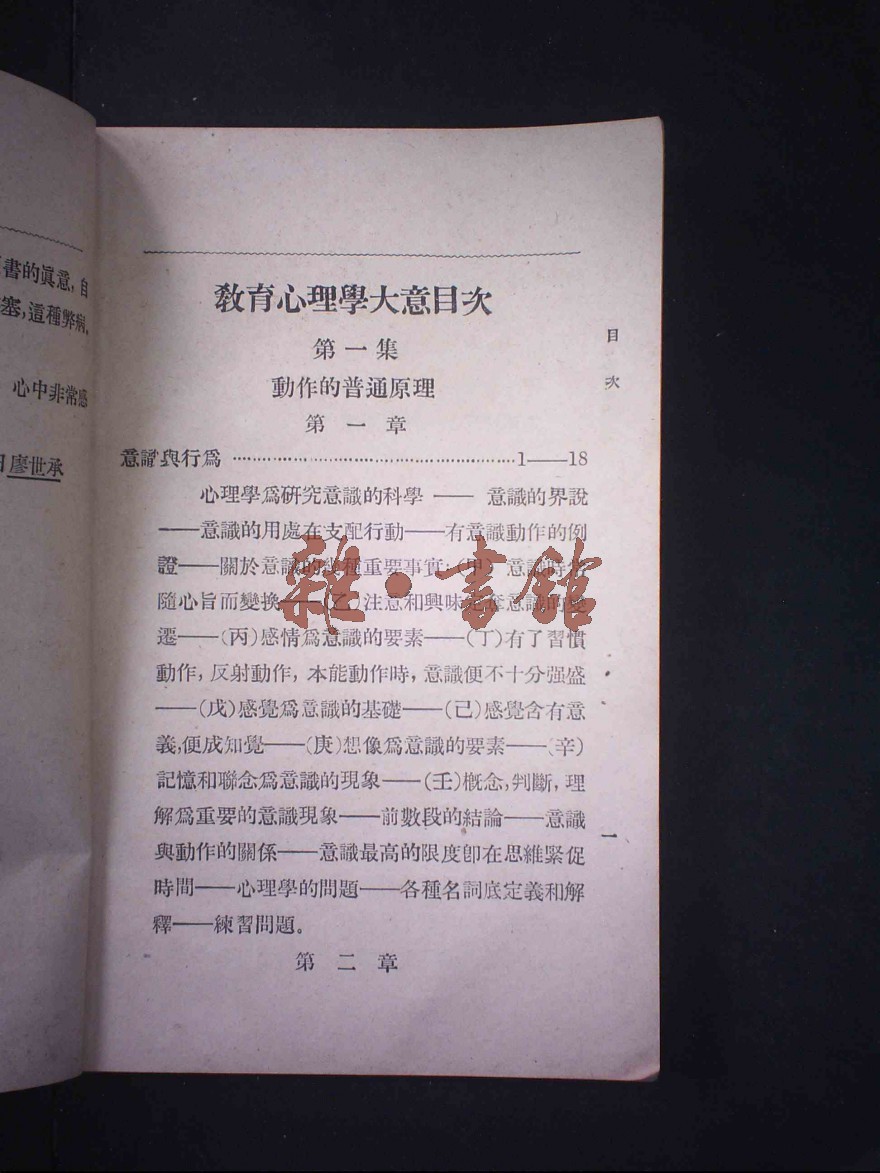 書的眞意,自
塞,這種弊病,
心中非常感
日廖世承
敎育心理學大意目次
第一集
動作的普通原理
第一章
意識與行爲 1——18
心理學爲硏究意識的科學——意識的界說
——意識的用處在支配行動——有意識動作的例
證——關於意識的幾種重要事實:(甲)意識時常
隨心旨而變換——(乙)注意和興味意識的變
遷——(丙)感情爲意識的要素——(丁)有了習慣
動作,反射動作,本能動作時,意識便不十分强盛
——(戊)感覺爲意識的基礎——(己)感覺含有意
義,便成知覺——(庚)想像爲意識的要素——(辛)
記憶和聯念爲意識的現象——(壬)概念,判斷,理
解爲重要的意識現象——前數段的結論——意識
與動作的關係——意識最高的限度卽在思維緊促
時間——心理學的問題——各種名詞底定義和解
釋——練習問題。
第二章
目次
一
雜·書館